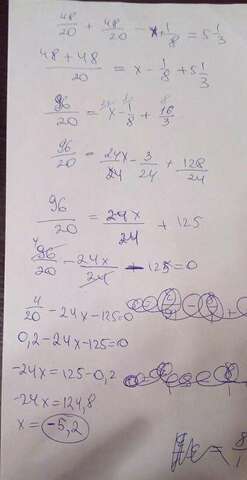 48/20 + 48/20 - x 1/8 = 5 1/3
48+48/20 = x - 1/8 + 5 1/3
96/20 = x - 1/8 + 16/3
96/20 = 24x/24 - 3/24 + 128/24
96/20 = 24x/24 + 125
96/20 - 24x/24 - 125 = 0
4/20 - 24x - 125 = 0
0,2 - 24x - 125 = 0
-24x = 125 - 0,2
-24x = 124,8
x = -5,2